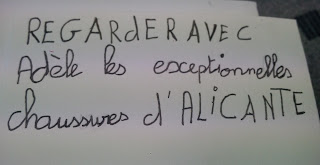 REGARdER AVEC
Adèle les exceptionnelles
chaussures d'ALiCANTE